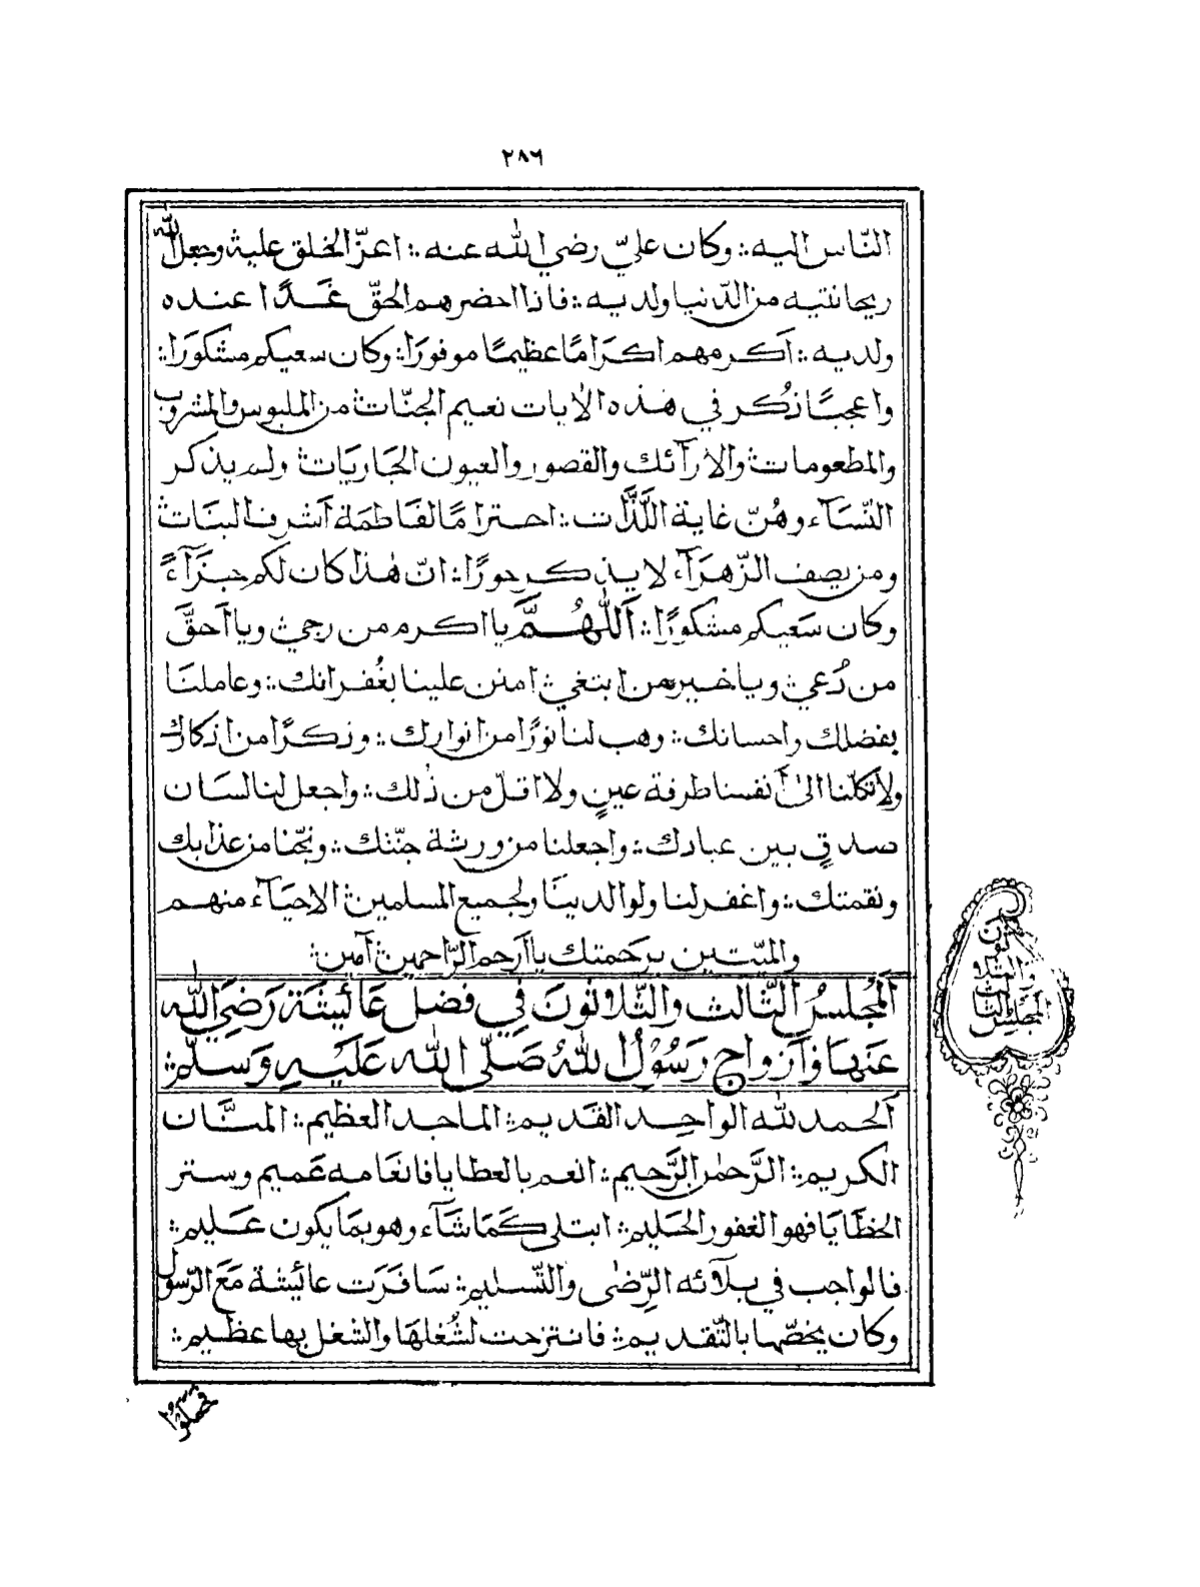 ٢٨٦
النّاس اليه ؞ وكان عليّ رضي الله عنه ؞ اعزّ الخلق عليه وجعل الله
ريحانتيه من الدّنيا ولديه ؞ فاذا احضرهم الحقّ غَدًا عنده
ولديه ؞ أكرمهم اكرَامًا عظيمًا موفورًا ؞ وكان سعيكم مشكورًا ؞
واعجبًا ذُكر في هذه الاٰيات نعيم الجنّات من الملبوس والمشروب
والمطعومات والارآئك والقصور والعيون الجَاريَات ولم يذكر
النّسَآء وهُنّ غاية اللَّذَّات ؞ احترامًا لفَاطمَة أشرف البنَات
ومن يصف الزّهرَآء لا يذكر حورًا ؞ انّ هٰذا كان لكم جزَآءً
وكان سَعيكم مشكورًا ؞ اَللّٰهُمَّ يا اكرم من رجي ويا اَحقَّ
من دُعي ويا خير من ابتغي امنن علينا بغُفرانك ؞ وعاملنَا
بفضلك واحسانك ؞ وهب لنا نورًا من انوارك ؞ وذكرًا من اذكارك
ولا تكلنا الىٰ أنفسنا طرفة عينٍ ولا اقلّ من ذٰلك ؞ واجعل لنا لسَان
صدقٍ بين عبادك ؞ واجعلنا من ورثة جنّتك ؞ ونجّنا من عذابك
ونقمتك ؞ واغفر لنا ولوالدينَا ولجميع المسلمين الاحيَآء منهم
والميّتين برحمتك يا اَرحم الرّاحمين آمين ؞
اَلمَجْلسُ الثّالث والثّلاثونَ فِي فضل عَائيشَة رَضيَ الله
عَنهَا وَازواج رَسُوْل اللهُ صَلّى الله عَلَيهِ وَسلّم ؞
المجلس الثالث والثلاثون
اَلحمد لله الواحِد القَديم ؞ الماجد العظيم ؞ المنَّان
الكريم ؞ الرَّحمٰن الرَّحيم ؞ انعم بالعطايا فانعَامه عَميم وستر
الخطَايَا فهو الغفور الحَليم ؞ ابتلى كَمَا شَآء وهو بمَا يكون عَليم ؞
فالواجب في بلآئه الرّضٰى والتّسليم ؞ سَافَرَت عائيشة مَعَ الرّسول
وكان يخصّها بالتّقديم ؞ فانتزحت لشُغلهَا والشغل بها عظيم ؞